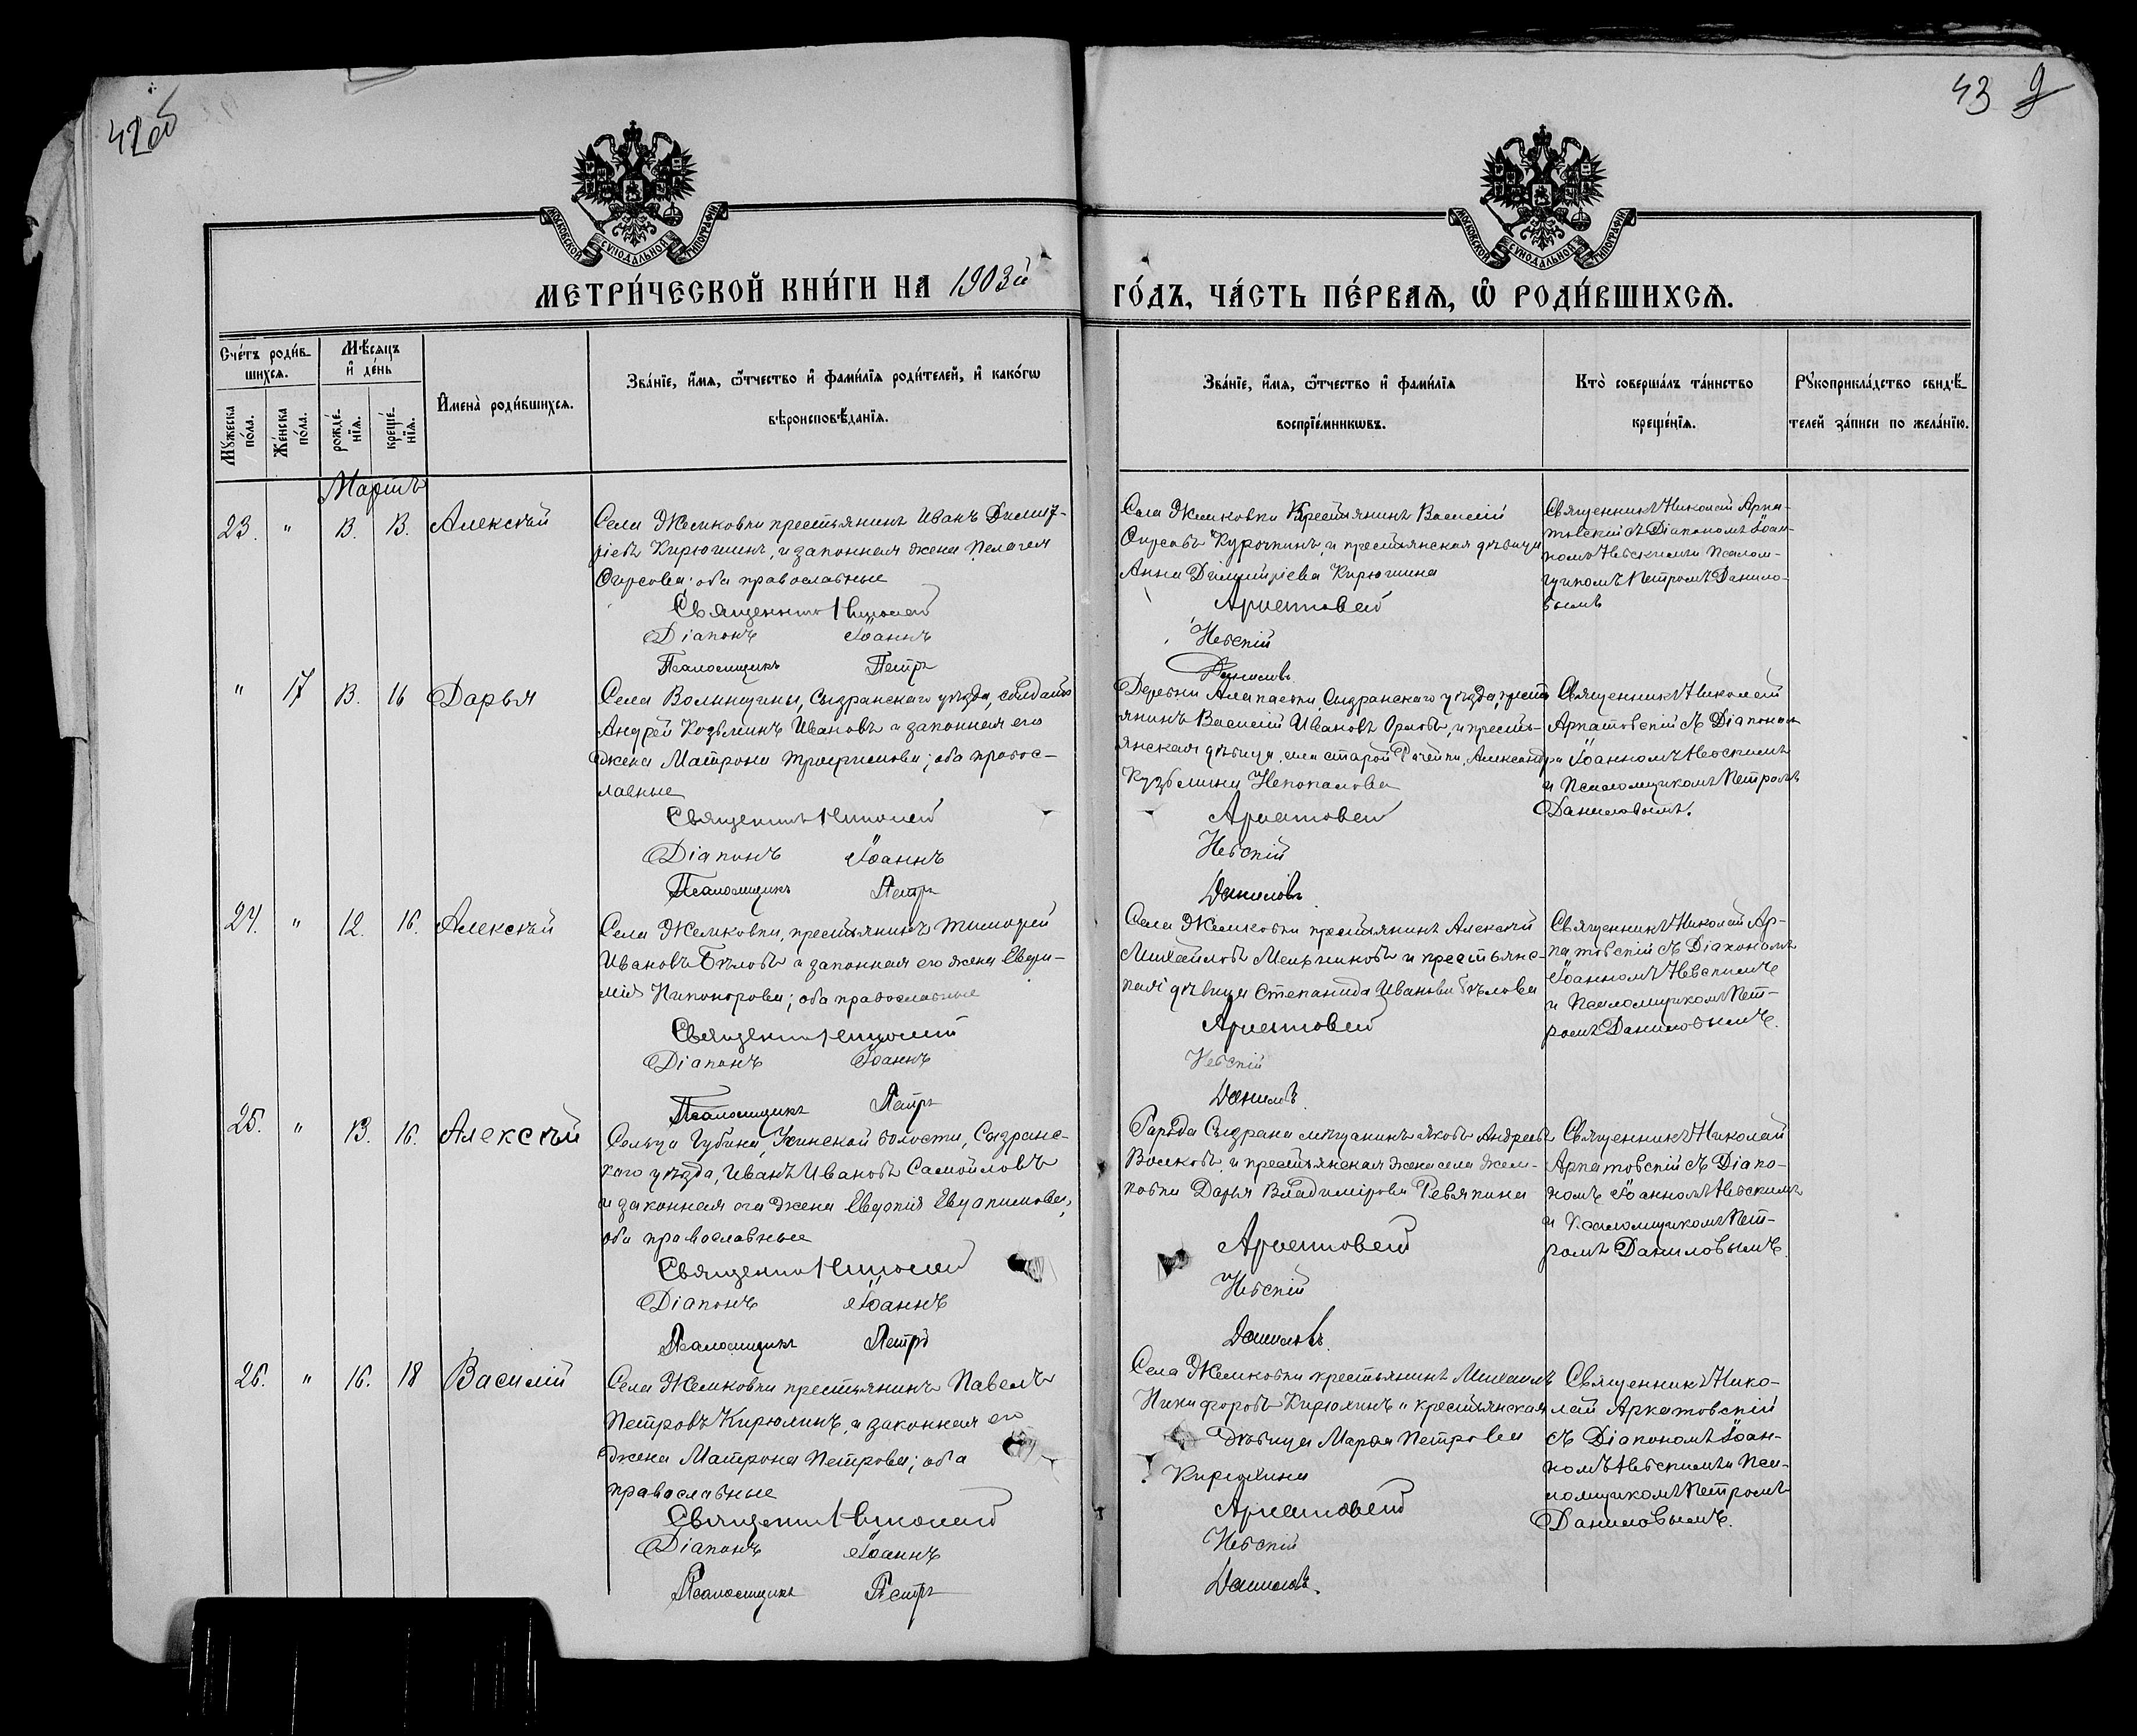 42об
43 9
МОСКОВСКОЙ СУНОДАЛЬНОЙ ТИПОГРАФІИ
МОСКОВСКОЙ СУНОДАЛЬНОЙ ТИПОГРАФІИ
МЕТРИ́ЧЕСКОЙ КНИ́ГИ НА 1903й
ГО́ДЪ, ЧА́СТЬ ПЕ́РВАѦ, Ѡ҆ РОДИ́ВШИХСѦ.
Сче́тъ роди́в-
шихсѧ.
Мꙋ́жеска по́ла.
Же́нска по́ла.
Мѣ́сѧцъ
и҆ де́нь
рожде́-
нїѧ.
креще́-
нїѧ.
И҆мена̀ роди́вшихсѧ.
Зва́нїе, и҆́мѧ, ѻ҆́тчество и҆ фами́лїѧ роди́телей, и҆ како́гѡ
вѣроисповѣ́данїѧ.
Зва́нїе, и҆́мѧ, ѻ҆́тчество и҆ фами́лїѧ
воспрїе́мникѡвъ.
Кто̀ соверша́лъ та́инство
креще́нїѧ.
Рꙋкоприкла́дство свидѣ́-
телей за́писи по жела́нїю.
Мартъ
23. " 13. 13. Алексѣй
Села Жемковки крестьянинъ Иванъ Димит-
ріевъ Кирюшинъ, и законная жена Пелагея
Фирсова; оба православные
Священникъ Николай
Діаконъ Іоаннъ
Псаломщикъ Петръ
Села Жемковки Крестьянинъ Василій
Фирсовъ Курочкинъ, и крестьянская дѣвица
Анна Димитріева Кирюшина
Аркатовскій
Невскій
Даниловъ
Священникъ Николай Арка-
товскій съ Діакономъ Іоан-
номъ Невскимъ и Псалом-
щикомъ Петромъ Данило-
вымъ
" 17 13. 16 Дарья
Села Волынщины, Сызранскаго уѣзда, солдатъ
Андрей Козьминъ Ивановъ и законная его
жена Матрона Трофимова; оба правос-
лавные
Священникъ Николай
Діаконъ Іоаннъ
Псаломщикъ Петръ
Деревни Сызранскаго уѣзда, крестъ
янинъ Василій Ивановъ Орловъ, и кресть-
янская дѣвица села старой Рачейки, Александра
Кузьмина
Аркатовскій
Невскій
Даниловъ
Священникъ Николай
Аркатовскій съ Діакономъ
Іоанномъ Невскимъ
и Псаломщикомъ Петромъ
Даниловымъ.
24. " 12. 16. Алексѣй
Села Жемковки, крестьянинъ Тимофей
Ивановъ Бѣловъ и законная его жена Евфи-
мія Никонорова; оба православные
Священникъ Николай
Діаконъ Іоаннъ
Псаломщикъ Петръ
Села Жемковки крестьянинъ Алексѣй
Михайловъ Мельниковъ и крестьянс-
кая дѣвица Степанида Иванова Бѣлова
Аркатовскій
Невскій
Даниловъ
Священникъ Николай Ар-
катовскій съ Діакономъ
Іоанномъ Невскимъ
и Псаломщикомъ Пет-
ромъ Даниловымъ.
25. " 13. 16. Алексѣй
Сельца Губина, Усинской волости, Сызранс-
каго уѣзда, Иванъ Ивановъ Самойловъ
и законная его жена Евдокія Евдокимова;
оба православные
Священникъ Николай
Діаконъ Іоаннъ
Псаломщикъ Петръ
Города Сызрана мѣщанинъ Яковъ Андреевъ
Волковъ, и крестьянская жена села Жем-
ковки Дарья Владимірова Ревякина
Аркатовскій
Невскій
Даниловъ.
Священникъ Николай
Аркатовскій съ Діако-
номъ Іоанномъ Невскимъ
и Псаломщикомъ Пет-
ромъ Даниловымъ.
26. " 16. 18 Василій
Села Жемковки крестьянинъ Павелъ
Петровъ Кирюхинъ, и законная его
жена Матрона Петрова; оба
православные
Священникъ Николай
Діаконъ Іоаннъ
Псаломщикъ Петръ
Села Жемковки крестьянинъ Михаилъ
Никифоровъ Кирюхинъ и крестьянская
дѣвица Марфа Петрова
Кирюхина
Аркатовскій
Невскій
Даниловъ.
Священникъ Нико-
лай Аркатовскій
съ Діакономъ Іоан-
номъ Невскимъ и Пса-
ломщикомъ Петромъ
Даниловымъ.